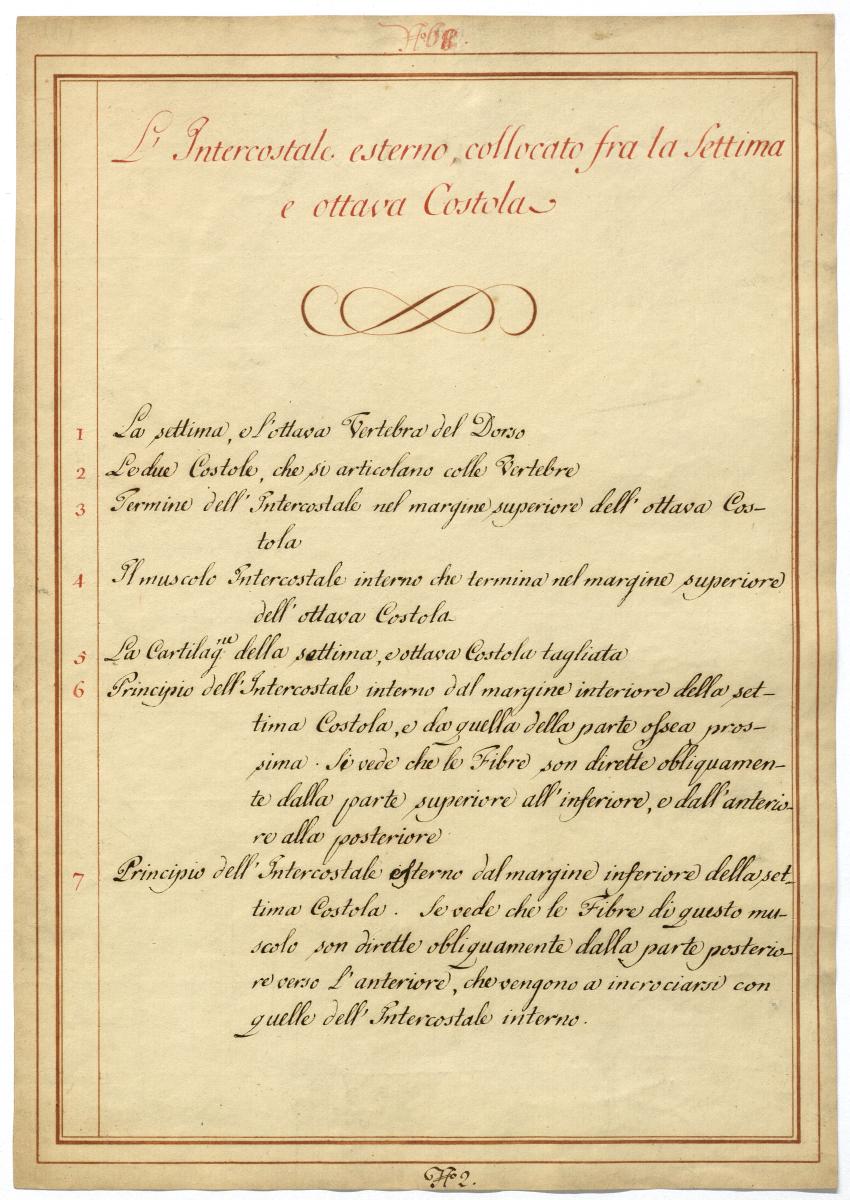 L' Intercostale esterno, collocato fra la Settima
e ottava Costola
1 La settima, e l'ottava Vertebra del Dorso
2 Le due Costole, che si articolano colle Vertebre
3 Termine dell' Intercostale nel margine superiore dell' ottava Cos-
tola
4 Il muscolo Intercostale interno che termina nel margine superiore
dell' ottava Costola
5 La Cartilag.ne della settima, e ottava Costola tagliata
6 Principio dell' Intercostale interno dal margine interiore della set-
tima Costola, e da quella della parte ossea pros-
sima. Si vede che le Fibre son dirette obliquamen-
te dalla parte superiore all' inferiore, e dall' anterio-
re alla posteriore
7 Principio dell' Intercostale esterno dal margine inferiore della set-
tima Costola. Se vede che le Fibre di questo mu-
scolo son dirette obliquamente dalla parte posterio-
re verso l' anteriore, che vengono a incrociarsi con
quelle dell' Intercostale interno.
No 2.